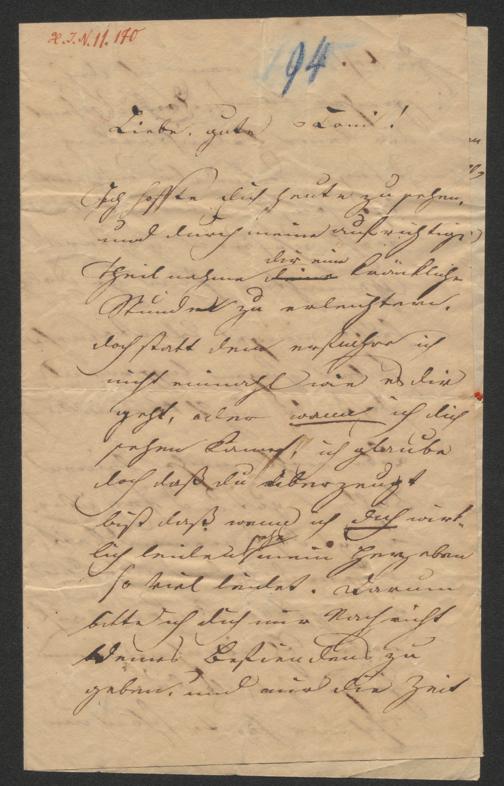 H. I. N. 11. 170
94.
Liebe, gute Toni!
Ich hoffte dich heute zu sehen,
und durch meine aufrichtige
Theilnahme dir eine kränkliche
Stunde zu erleichtern.
doch statt dem erfuhr ich
nicht einmahl wie es dir
geht, oder wann ich dich
sehen kann, ich glaube
doch daß du überzeugt
bist daß wenn ich dich wirk-
lich leidend mein Herz eben
so viel leidet. Darum
bitte ich dich nur Nachricht
deines Befindens zu
geben, und mir die Zeit